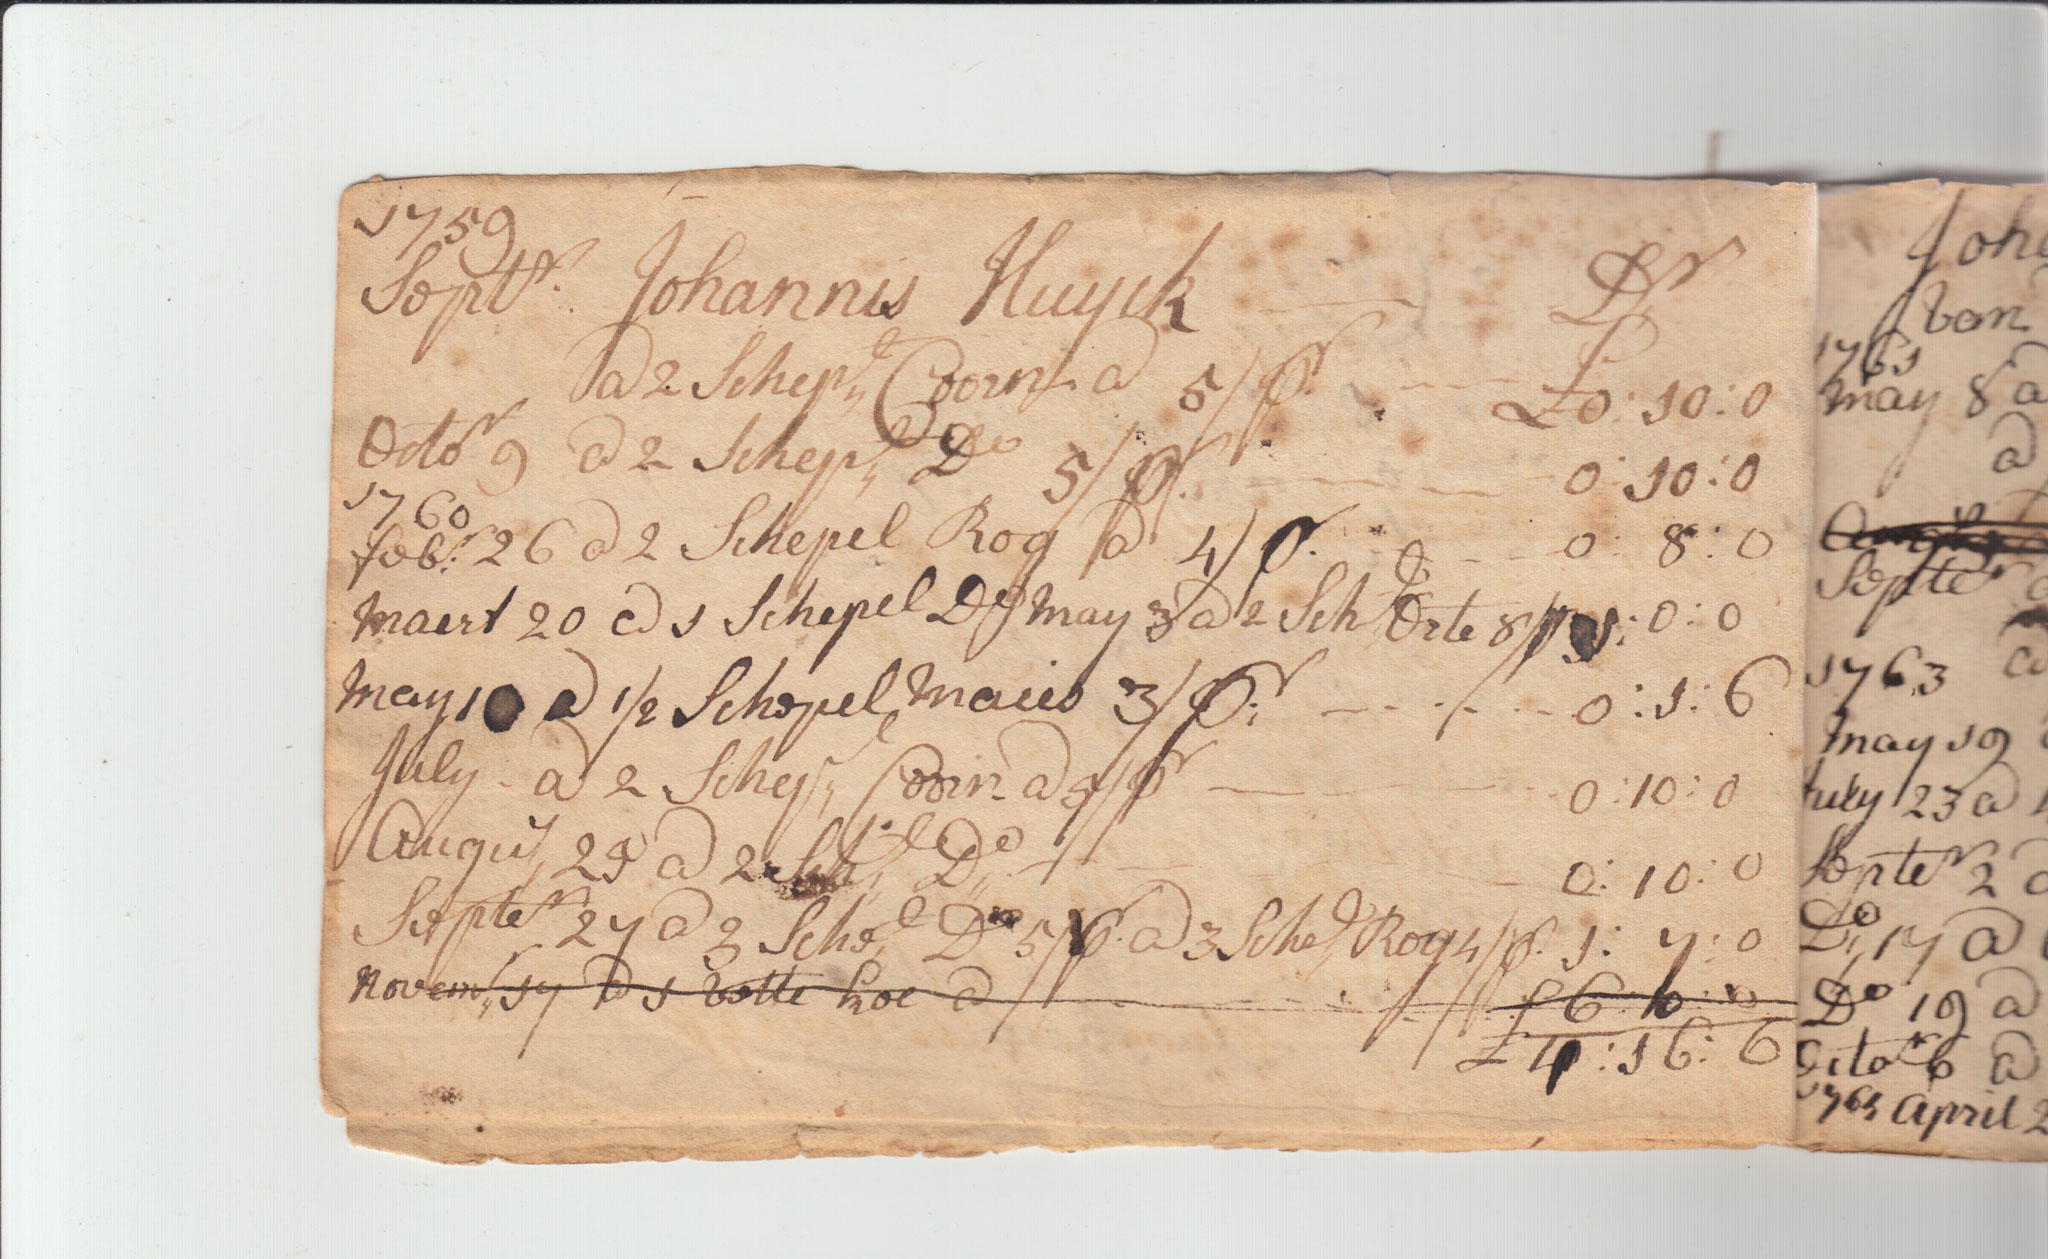 1759
Septr. Johannis Huyck Dr
a 2 Schepl Coorn a 5/ pr. £0:10:0
Octor 9 a 2 Schepl Do 5/ pr. 0:10:0
1760
febr. 26 a 2 Schepel Rog a 4/ pr. 0:8:0
Maert 20 a 1 Schepel Do May 3 a 2 Schl Erte 8/ 1:0:0
May 10 a 1/2 Schepel Maies 3/ pr. 0:1:6
July a 2 Schepl Coorn a 5/ pr 0:10:0
Augus 29 a 2 Schl Do 0:10:0
Septer 27 a 3 Schel Do 5/ pr. a 3 Schel Rog 4/ pr. 1:7:0
Novemr 17 a 1 vette koe a
£6:10:0
£4:16:6
Joh
van
1761
May 8 a
a
Septer a
1763 a
May 19
July 23 a
Septer 2 a
Do 17 a
Do 19 a
Octor 6 a
1765 April 2